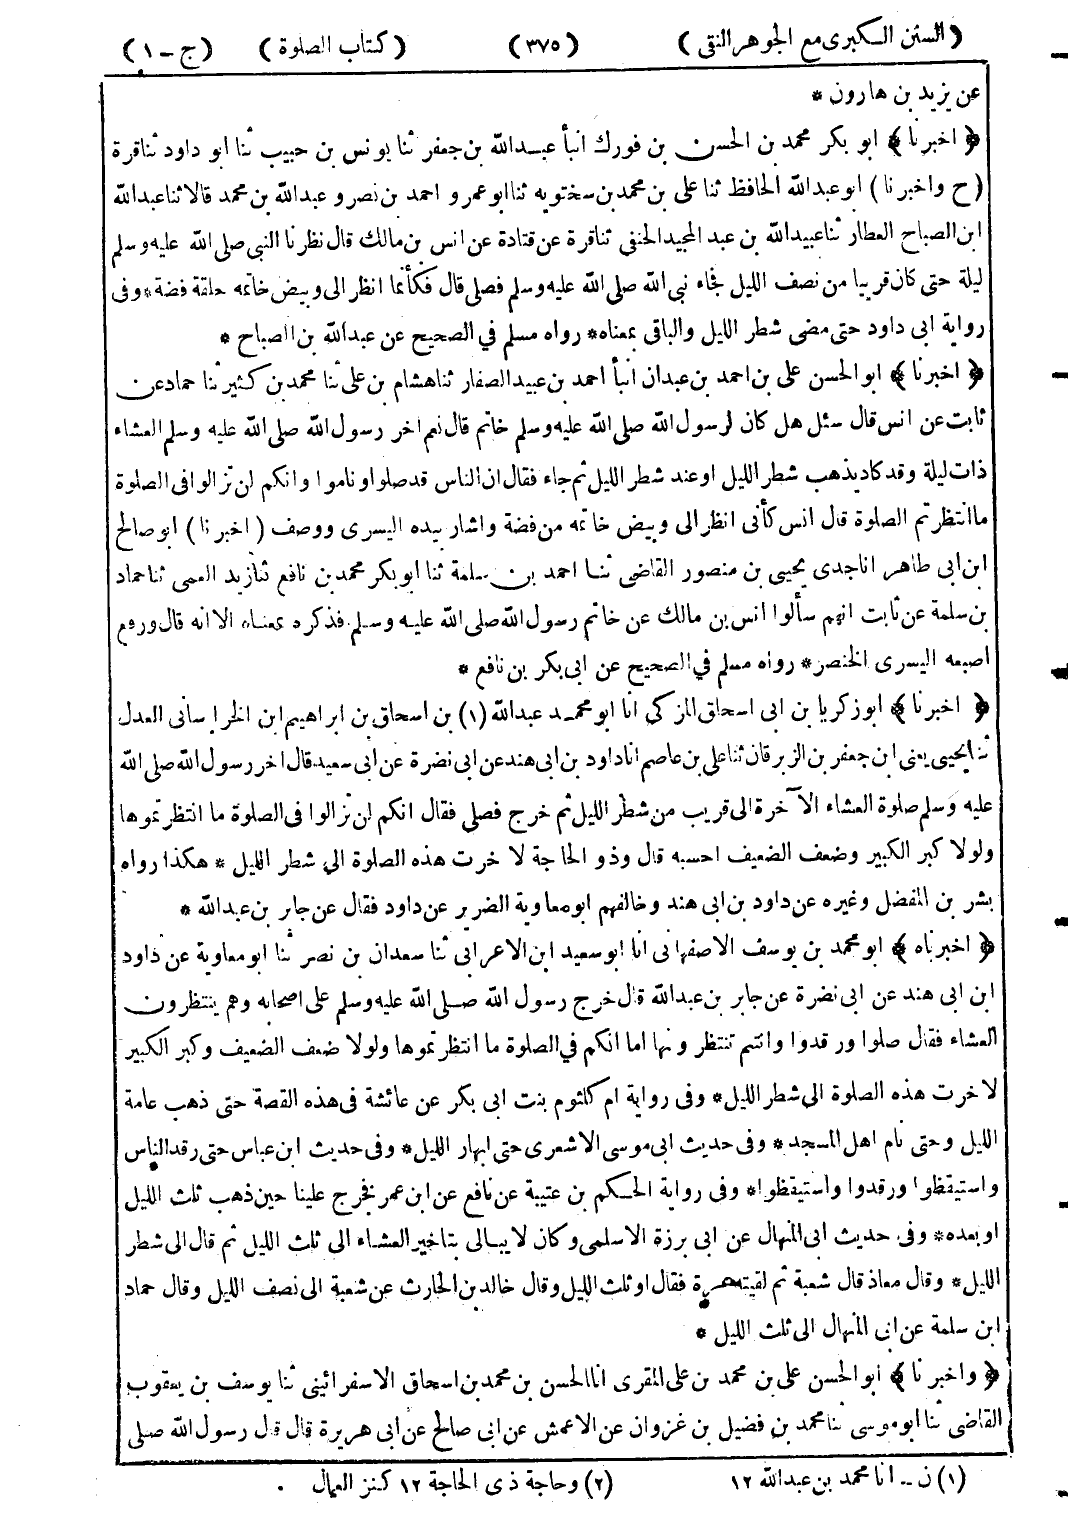 (السنن الكبرى مع الجوهر النقى) (٣٧٥) (كتاب الصلوة) (ج - ١)
عن يزيد بن هارون *
﴿ اخبرنا ﴾ ابو بكر محمد بن الحسن بن فورك انبأ عبدالله بن جعفر ثنا يونس بن حبيب ثنا ابو داود ثنا قرة
(ح واخبرنا) ابو عبدالله الحافظ ثنا على بن محمد بن سختويه ثنا ابو عمرو احمد بن نصر و عبدالله بن محمد قالا ثنا عبدالله
ابن الصباح العطار ثنا عبيدالله بن عبد المجيد الحنفى ثنا قرة عن قتادة عن انس بن مالك قال نظرنا النبى صلى الله عليه وسلم
ليلة حتى كان قريبا من نصف الليل فجاء نبى الله صلى الله عليه وسلم فصلى قال فكأنما انظر الى وبيض خاتمه حلقة فضة * وفى
رواية ابى داود حتى مضى شطر الليل والباقى بمعناه * رواه مسلم في الصحيح عن عبدالله بن الصباح *
﴿ اخبرنا ﴾ ابو الحسن على بن احمد بن عبدان انبأ احمد بن عبيد الصفار ثنا هشام بن على ثنا محمد بن كثير ثنا حماد عن
ثابت عن انس قال سئل هل كان لرسول الله صلى الله عليه وسلم خاتم قال نعم اخر رسول الله صلى الله عليه وسلم العشاء
ذات ليلة وقد كاد يذهب شطر الليل او عند شطر الليل ثم جاء فقال ان الناس قد صلوا وناموا وانكم لن تزالوا فى الصلوة
ما انتظرتم الصلوة قال انس كأنى انظر الى وبيض خاتمه من فضة واشار بيده اليسرى ووصف (اخبرنا) ابو صالح
ابن ابى طاهر انا جدى يحيى بن منصور القاضى ثنا احمد بن سلمة ثنا ابو بكر محمد بن نافع ثنا زيد العمى ثنا حماد
بن سلمة عن ثابت انهم سألوا انس بن مالك عن خاتم رسول الله صلى الله عليه وسلم فذكره بمعناه الا انه قال ورفع
اصبعه اليسرى الخنصر * رواه مسلم في الصحيح عن ابى بكر بن نافع *
﴿ اخبرنا ﴾ ابو زكريا بن ابى اسحاق المزكى انا ابو محمد عبدالله (١) بن اسحاق بن ابراهيم ابن الخراسانى العدل
ثنا يحيى يعنى ابن جعفر بن الزبرقان ثنا على بن عاصم انا داود بن ابى هند عن ابى نضرة عن ابى سعيد قال اخر رسول الله صلى الله
عليه وسلم صلوة العشاء الآخرة الى قريب من شطر الليل ثم خرج فصلى فقال انكم لن تزالوا فى الصلوة ما انتظرتموها
ولولا كبر الكبير وضعف الضعيف احسبه قال وذو الحاجة لاخرت هذه الصلوة الى شطر الليل * هكذا رواه
بشر بن المفضل وغيره عن داود بن ابى هند وخالفهم ابو معاوية الضرير عن داود فقال عن جابر بن عبدالله *
﴿ اخبرناه ﴾ ابو محمد بن يوسف الاصفهانى انا ابو سعيد ابن الاعرابى ثنا سعدان بن نصر ثنا ابو معاوية عن داود
ابن ابى هند عن ابى نضرة عن جابر بن عبدالله قال خرج رسول الله صلى الله عليه وسلم على اصحابه وهم ينتظرون
العشاء فقال صلوا ورقدوا وانتم تنتظرونها اما انكم في الصلوة ما انتظرتموها ولولا ضعف الضعيف وكبر الكبير
لاخرت هذه الصلوة الى شطر الليل * وفى رواية ام كلثوم بنت ابى بكر عن عائشة فى هذه القصة حتى ذهب عامة
الليل وحتى نام اهل المسجد * وفى حديث ابى موسى الاشعرى حتى ابهار الليل * وفى حديث ابن عباس حتى رقد الناس
واستيقظوا ورقدوا واستيقظوا * وفى رواية الحكم بن عتيبة عن نافع عن ابن عمر فخرج علينا حين ذهب ثلث الليل
او بعده * وفى حديث ابى المنهال عن ابى برزة الاسلمى وكان لا يبالى بتاخير العشاء الى ثلث الليل ثم قال الى شطر
الليل * وقال معاذ قال شعبة ثم لقيته مرة فقال او ثلث الليل وقال خالد بن الحارث عن شعبة الى نصف الليل وقال حماد
ابن سلمة عن ابى المنهال الى ثلث الليل *
﴿ واخبرنا ﴾ ابو الحسن على بن محمد بن على المقرى انا الحسن بن محمد بن اسحاق الاسفرائينى ثنا يوسف بن يعقوب
القاضى ثنا ابو موسى ثنا محمد بن فضيل بن غزوان عن الاعمش عن ابى صالح عن ابى هريرة قال قال رسول الله صلى
(١) ن - انا محمد بن عبدالله ١٢ (٢) وحاجة ذى الحاجة ١٢ كنز العمال .